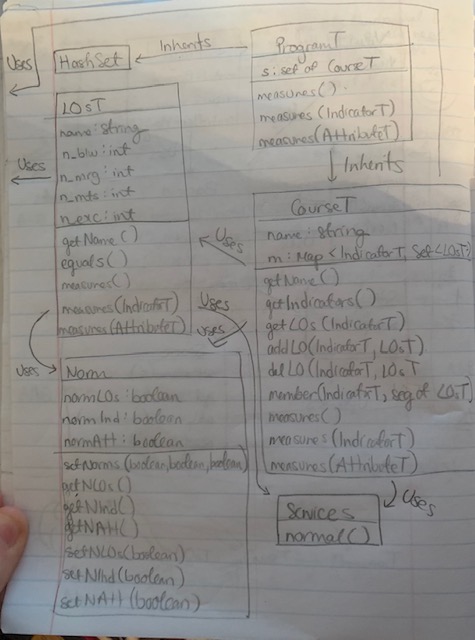 Inherits
ProgramT
s: set of CourseT
measures()
measures(IndicatorT)
measures(AttributeT)
Uses
HashSet
Inherits
LOsT
name: string
n_blw: int
n_mrg: int
n_mts: int
n_exc: int
getName()
equals()
measures()
measures(IndicatorT)
measures(AttributeT)
Uses
Uses
Uses
Uses
CourseT
name: string
m: Map<IndicatorT, Set<LOsT>
getName()
getIndicators()
getLOs(IndicatorT)
addLO(IndicatorT, LOsT)
delLO(IndicatorT, LOsT
member(IndicatorT, seq of LOsT)
measures()
measures(IndicatorT)
measures(AttributeT)
Uses
Norm
normLOs: boolean
normInd: boolean
normAtt: boolean
setNorms(boolean, boolean, boolean)
getNLOs()
getNInd()
getNAtt()
setNLOs(boolean)
setNInd(boolean)
setNAtt(boolean)
Uses
Services
normal()